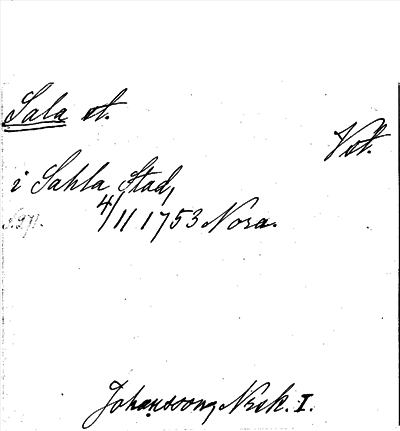 Sala st.
Vst.
i Sahla Stad,
4/11 1753 Nora.
S. 271.
Johansson, Nsk. I.